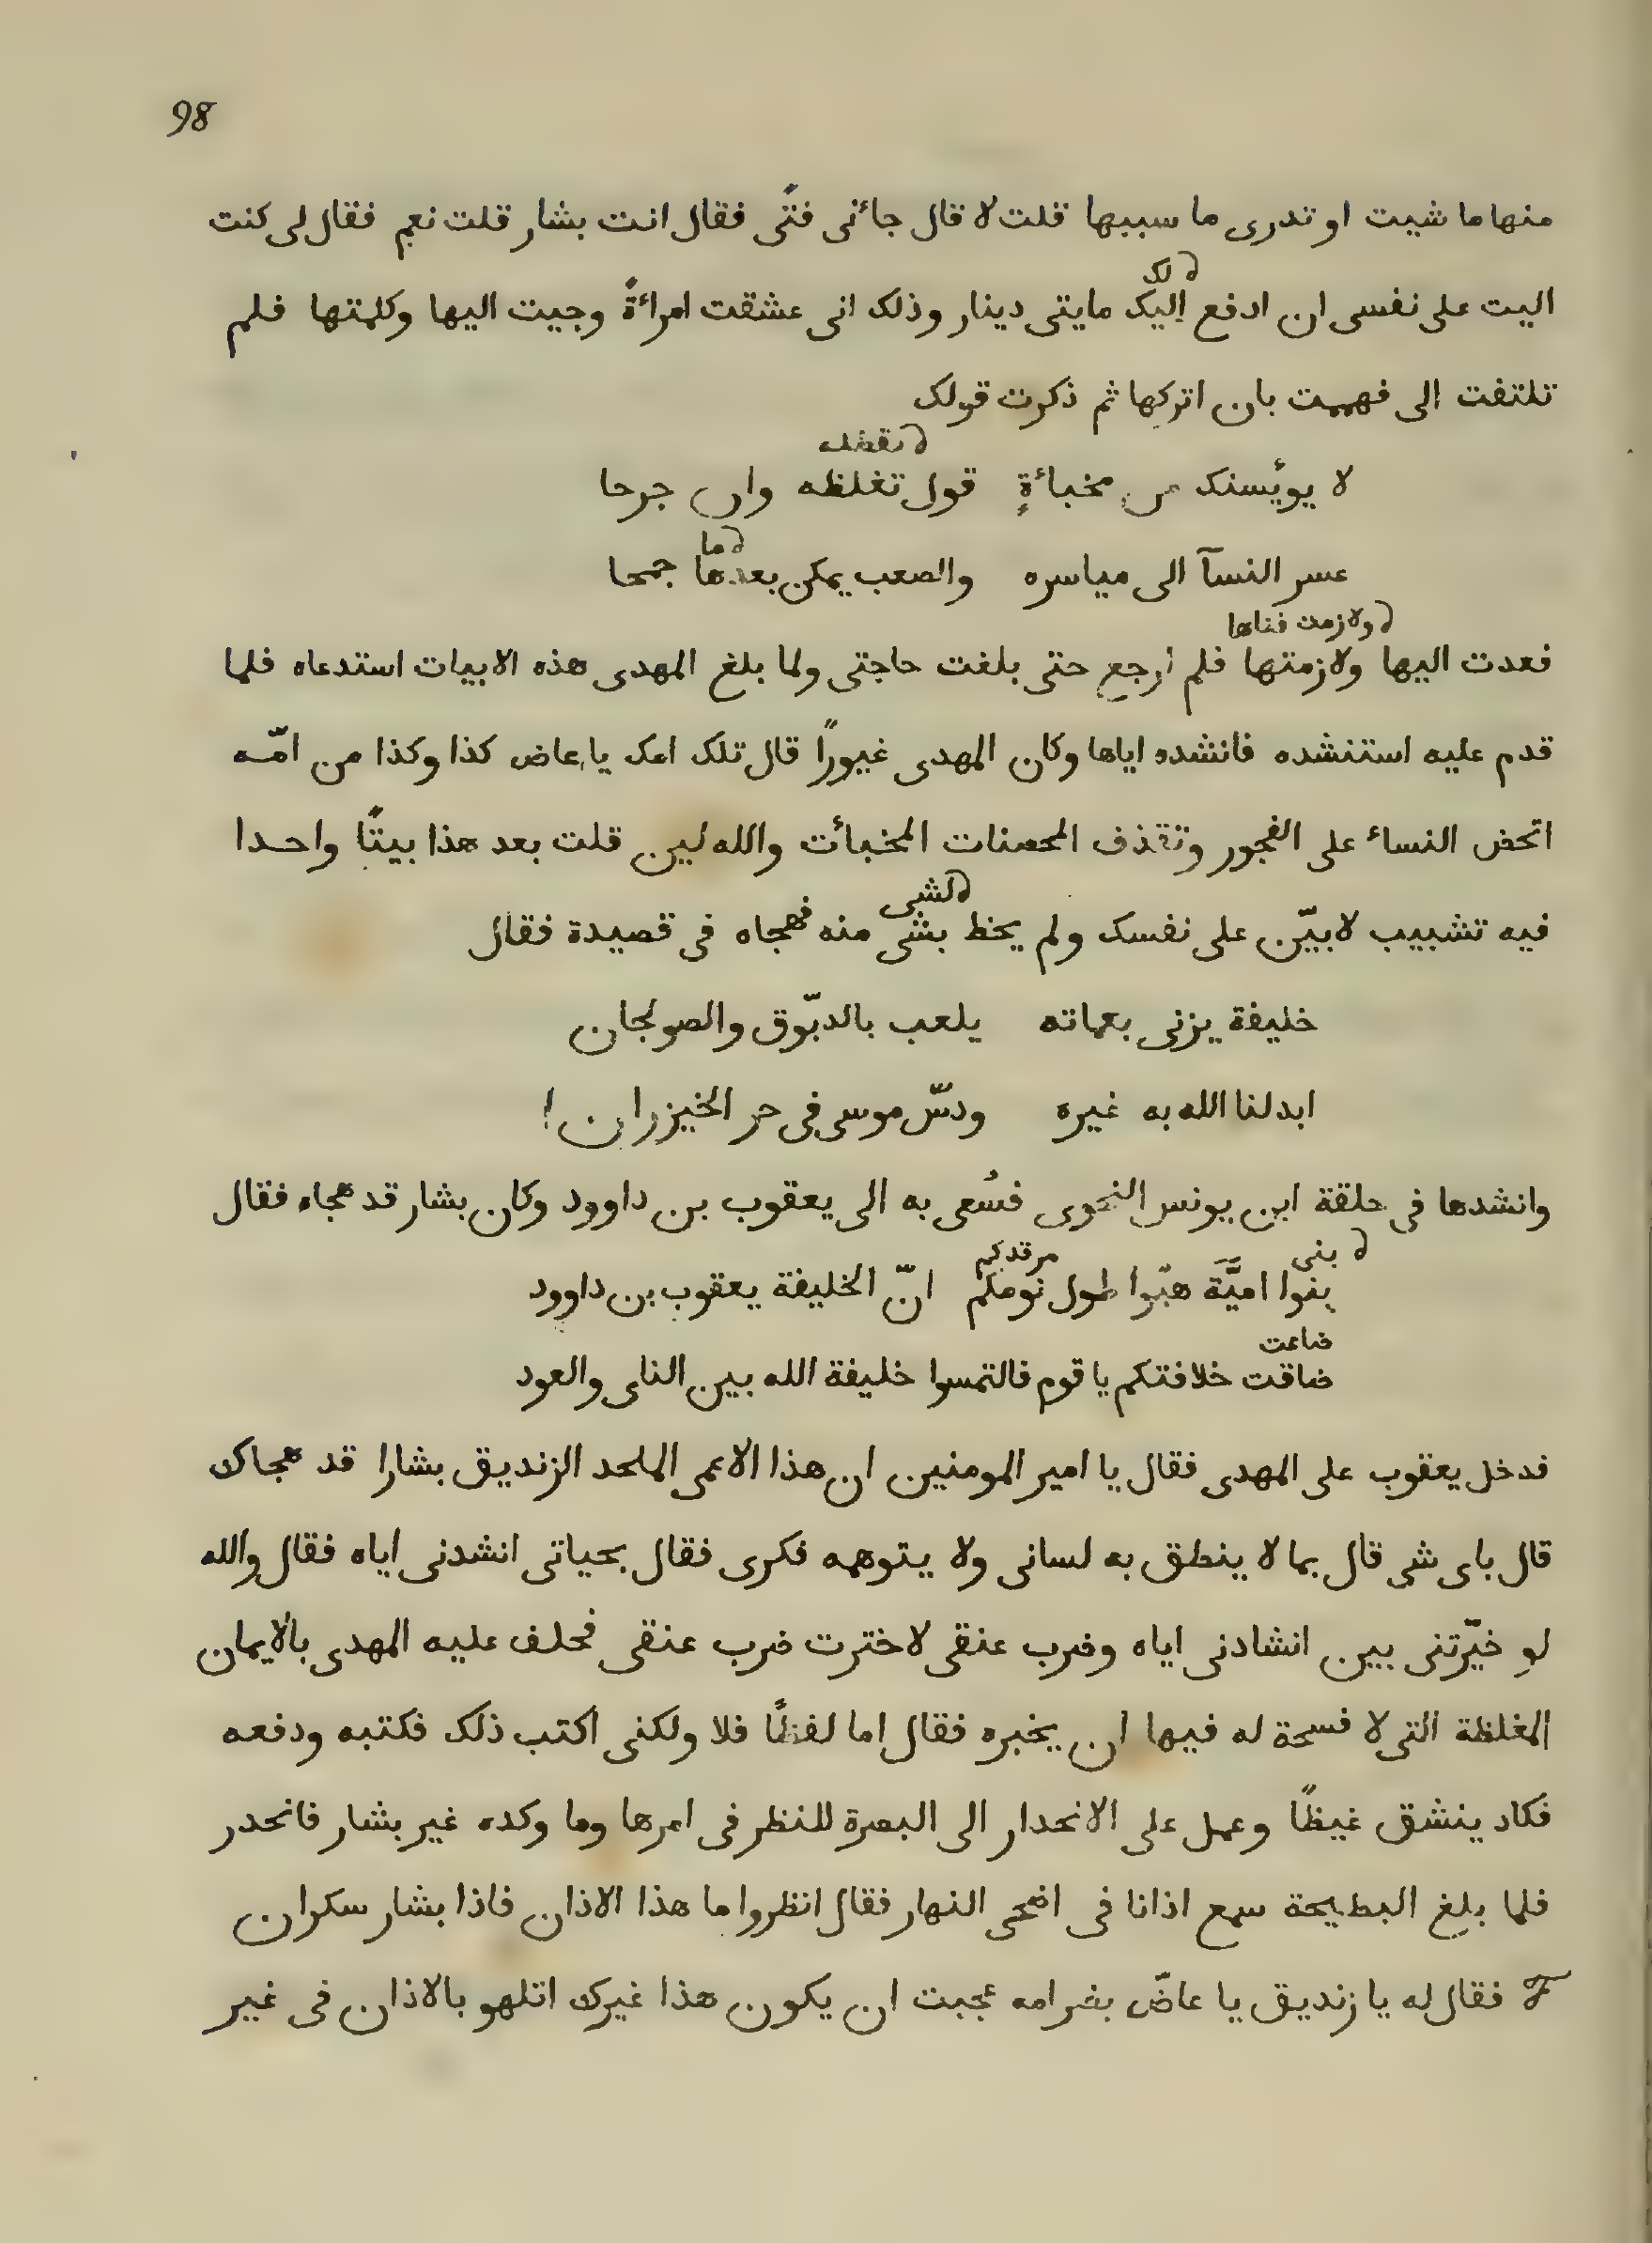 98
منها ما شيت او تدرى ما سببها قلت لا قال جائنى فتًى فقال انت بشار قلت نعم فقال لى كنت
لك
اليت على نفسى ان ادفع اليك مايتى دينار وذلك انى عشقت امرائةً وجيت اليها وكلمتها فلم
تلتفت الى فهممت بان اتركها ثم ذكرت قولك
لا يوئسنك من مخبائةٍ قول تغلظه وان جرحا
ما
عسر النسآ الى مياسره والصعب يمكن بعدها جمحا
ولازمت فناها
فعدت اليها ولازمتها فلم ارجع حتى بلغت حاجتى ولما بلغ المهدى هذه الابيات استدعاه فلما
قدم عليه استنشده فانشده اياها وكان المهدى غيورًا قال تلك امك يا عاض كذا وكذا من امّه
اتحض النساء على الفجور وتقذف المحصنات المخبأت والله لين قلت بعد هذا بيتًا واحدا
لشى
فيه تشبيب لابيّن على نفسك ولم يحظ بشى منه فهجاه فى قصيدة فقال
خليفة يزنى بعماته يلعب بالدبّوق والصولجان
ابدلنا الله به غيره ودسّ موسى فى حر الخيزران!
وانشدها فى حلقة ابن يونس النحوى فسُعى به الى يعقوب بن داوود وكان بشار قد هجاه فقال
بنى مرقدكم
بنوا اميَّة هبّوا طول نومكم انّ الخليفة يعقوب بن داوود
ضاعت
ضاقت خلافتكم يا قوم فالتمسوا خليفة الله بين الناى والعود
فدخل يعقوب على المهدى فقال يا امير المومنين ان هذا الاعمى الملحد الزنديق بشارا قد هجاك
قال باى شى قال بما لا ينطق به لسانى ولا يتوهمه فكرى فقال بحياتى انشدنى اياه فقال والله
لو خيّرتنى بين انشادنى اياه وضرب عنقى لاخترت ضرب عنقى فحلف عليه المهدى بالايمان
المغلظة التى لا فسحة له فيها ان يخبره فقال اما لفظًا فلا ولكنى اكتب ذلك فكتبه ودفعه
فكاد ينشق غيظًا وعمل على الانحدار الى البصرة للنظر فى امرها وما وكده غير بشار فانحدر
فلما بلغ البطيحة سمع اذانا فى اضحى النهار فقال انظروا ما هذا الاذان فاذا بشار سكران
فقال له يا زنديق يا عاضّ بضرامه عجبت ان يكون هذا غيرك اتلهو بالاذان فى غير